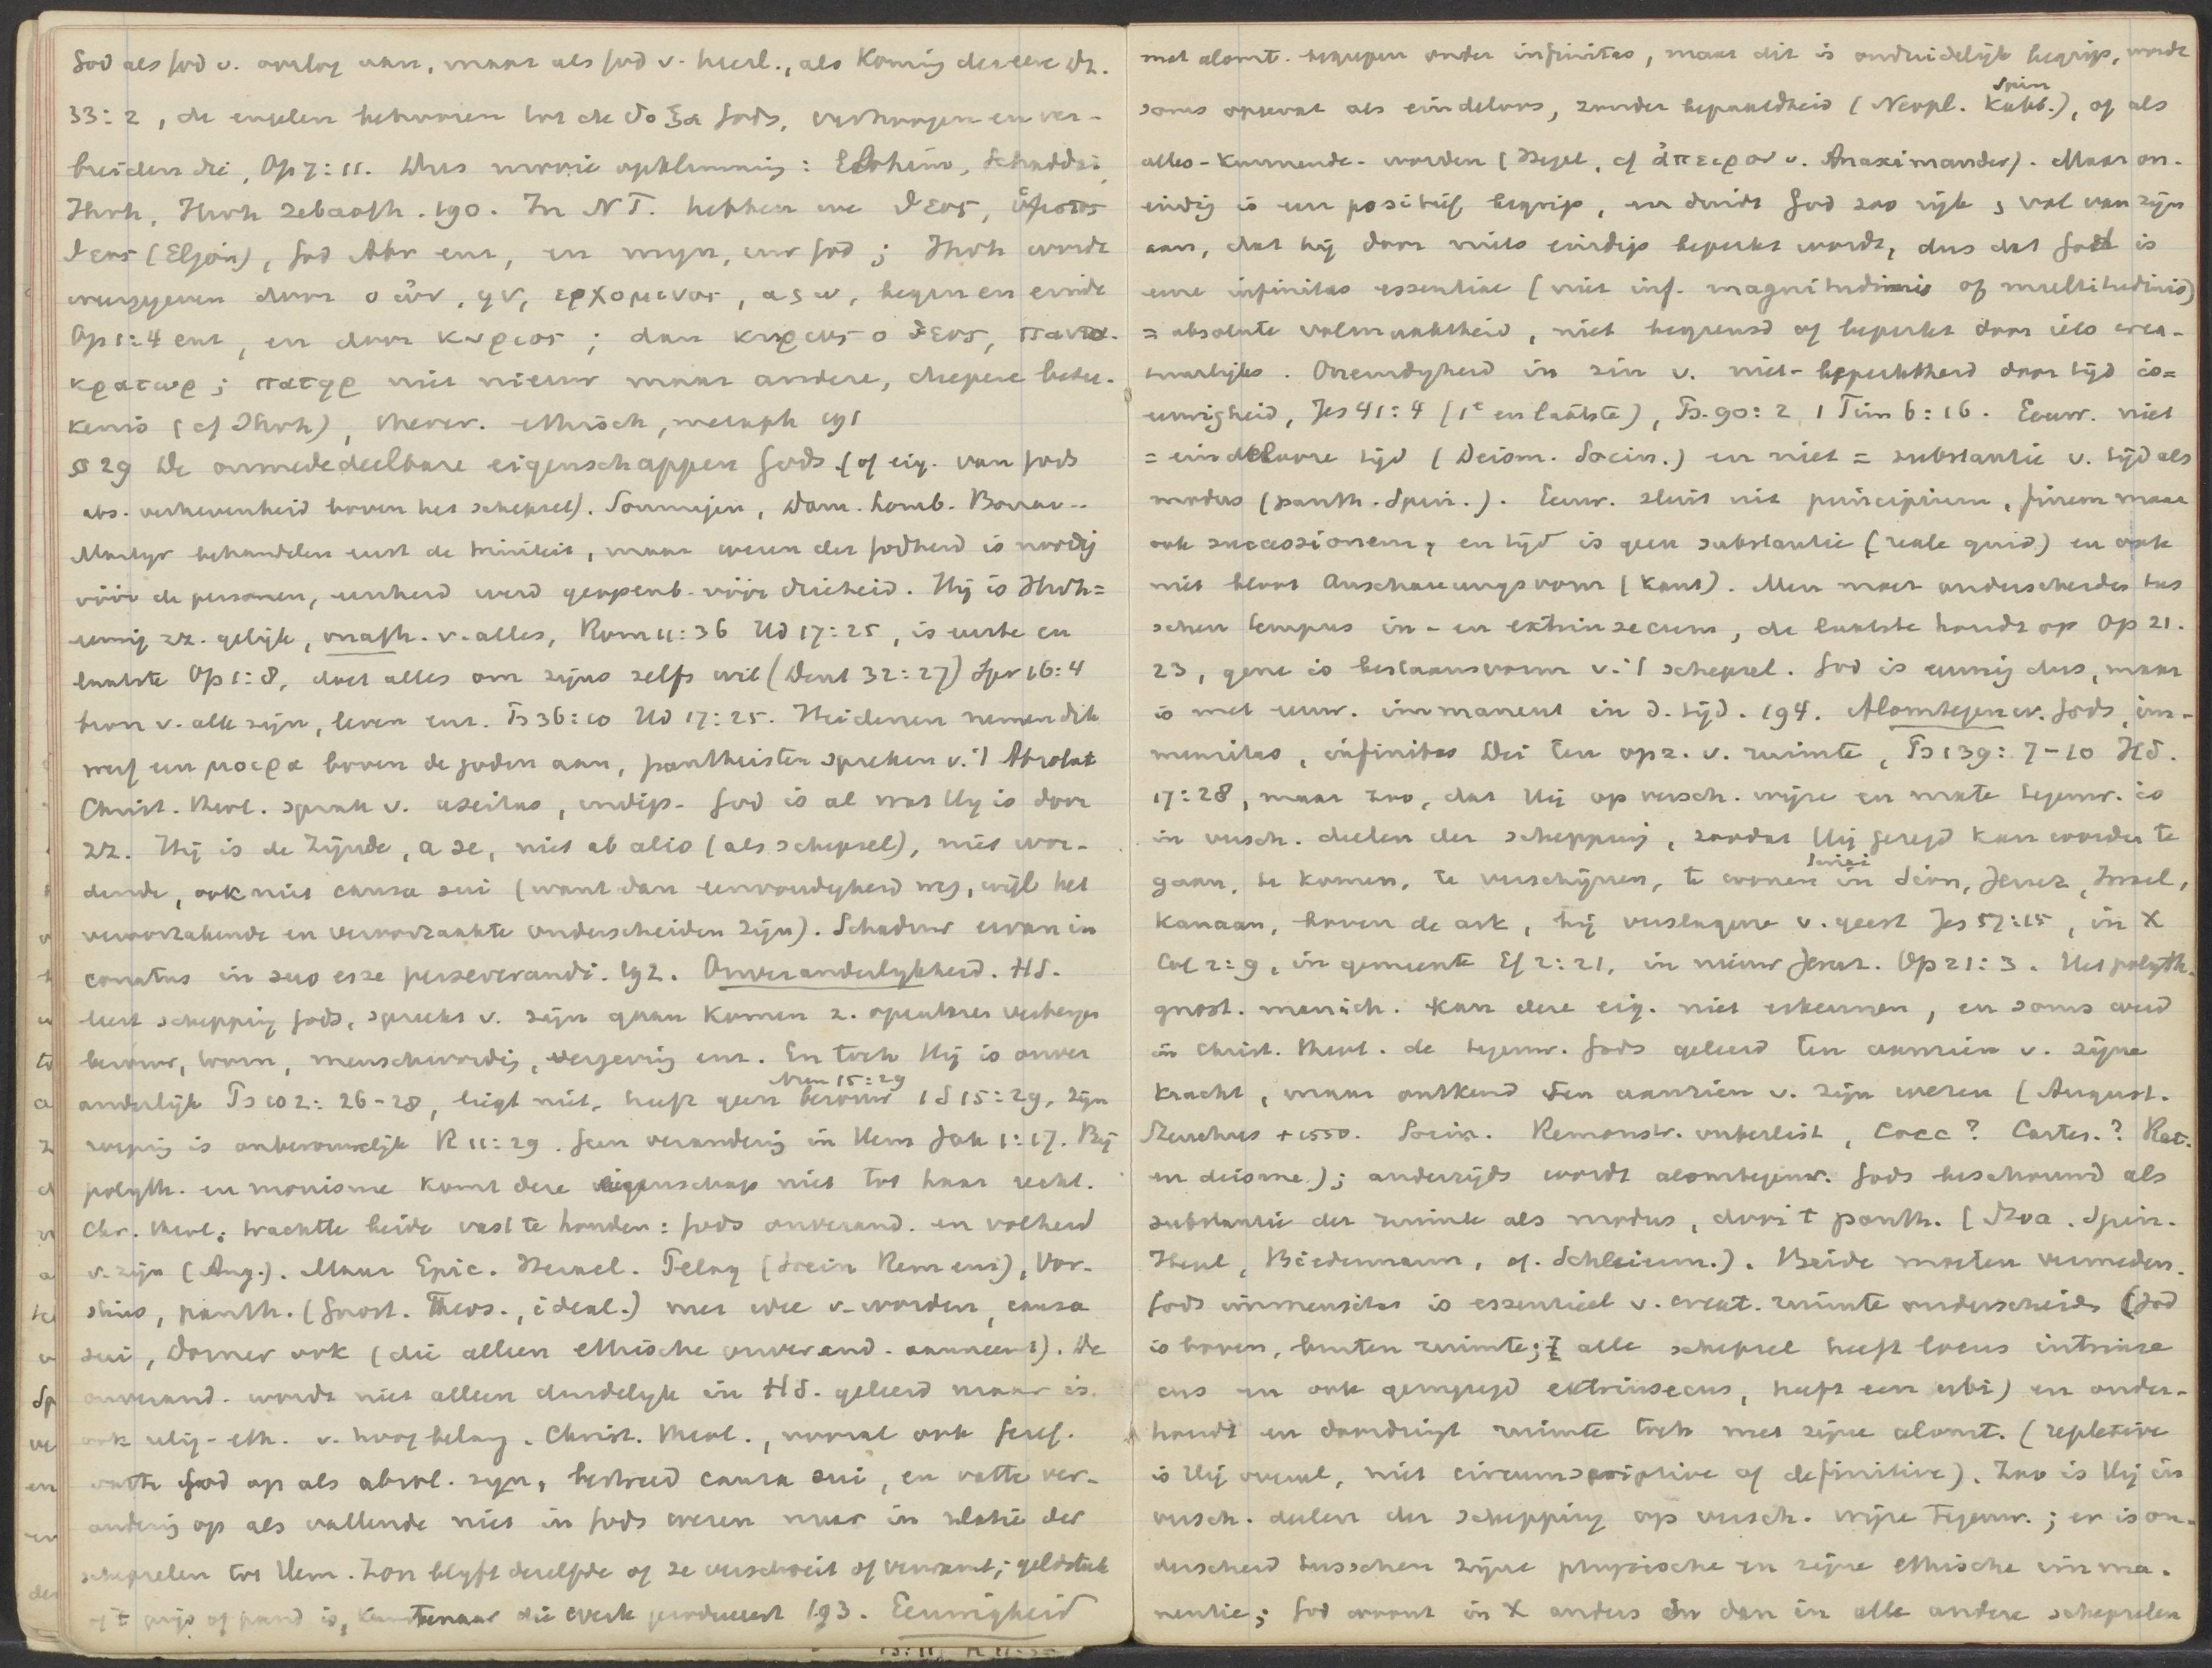 God als god v. oorlog aan, maar als god v. heerl., als Koning der eere Dt.
33:2, de engelen behooren tot de δοξα Gods, verhoogen en ver-
breiden die, Op 7:11. Dus mooie opklimming: Elohim, Schaddai,
Jhvh, Jhvh Zebaoth. 190. In NT. hebben we θεος, ὑψιστος
θεος (Eljôn), God Abr enz, en mijn, uw god; Jhvh wordt
weergegeven door ο ὠν, ην, ερχομενος, α ς ω, begin en einde
Op 1:4 enz, en door κυριος; dan κυριος ο θεος, παντο-
κρατωρ; πατηρ niet nieuw maar andere, diepere betee-
kenis (cf Jhvh), theocr. ethisch, metaph 191
§ 29 De onmededeelbare eigenschappen Gods (of eig. van Gods
abs. verhevenheid boven het schepsel). Sommigen, Dam. Lomb. Bonav..
Martyr behandelen eerst de triniteit, maar wezen der godheid is noodig
vóór de personen, eenheid werd geopenb. vóór drieheid. Hij is Jhvh =
eeuwig zz. gelijk, onafh. v. alles, Rom 11:36 Hd 17:25, is eerste en
laatste Op 1:8, doet alles om zijns zelfs wil (Deut 32:27) Spr 16:4
bron v. alle zijn, leven enz. Ps 36:10 Hd 17:25. Heidenen nemen dik
werf een μοερα boven de goden aan, pantheisten spreken v. 't Absolut
Christ. theol. sprak v. aseitas, indep. God is al wat Hij is door
zz. Hij is de Zijnde, a se, niet ab alio (als schepsel), niet wor-
dende, ook niet causa sui (want dan eenvoudigheid weg, wijl het
veroorzakende en veroorzaakte onderscheiden zijn). Schaduw ervan in
conatus in suo esse perseverandi. 192. Onveranderlijkheid. HS.
leert schepping Gods, spreekt v. zijn gaan komen z. openbaren verbergen
berouw, toorn, menschwordig, vergeving enz. En toch Hij is onver
anderlijk Ps 102:26-28, liegt niet, heeft geen berouw Num 15:29 1 S 15:29, Zijn
roeping is onberouwelijk R 11:29. Geen verandering in Hem Jak 1:17. Bij
polyth. en monisme komt deze eigenschap niet tot haar recht.
Chr. theol. trachtte beide vast te houden: Gods onverand. en volheid
v. zijn (Aug.). Maar Epic. Heracl. Pelag (Socin Rem enz), Vor-
stius, panth. (Gnost. Theos., ideal.) met idee v. worden, causa
sui, Dorner ook (die alleen ethische onverand. aanneemt). De
onverand. wordt niet alleen duidelijk in HS. geleerd maar is
ook relig-eth. v. hoog belang. Christ. theol., vooral ook Geref.
vatte God op als absol. zijn, bestreed causa sui, en vatte ver-
andering op als vallende niet in Gods wezen maar in relatie der
schepselen tot Hem. Zon blijft dezelfde of ze verschroeit of verwarmt; geldstuk
of 't prijs of pand is, Kunstenaar die werk produceert 193. Eeuwigheid
met alomt. begrepen onder infinitas, maar dit is onduidelijk begrip, wordt
soms opgevat als eindeloos, zonder bepaaldheid (Neopl. Kabb. Spin), of als
alles-kunnende-worden (Hegel, cf ἀπειρον v. Anaximander). Maar on-
eindig is een positief begrip, en duidt God zoo rijk & vol van zijn
aan, dat hij door niets eindigs beperkt wordt, dus dat God is
eene infinitas essentiae (niet inf. magnitudinis of multitudinis)
= absolute volmaaktheid, niet begrensd of beperkt door iets crea-
tuurlijks. Oneindigheid in zin v. niet-beperktheid door tijd is =
eeuwigheid, Jes 41:4 (1e en laatste), Ps. 90:2, 1 Tim 6:16. Eeuw. niet
= eindelooze tijd (Deism. Socin.) en niet = substantie v. tijd als
modus (panth. Spin.). Eeuw. sluit niet principium, finem maar
ook successionem, en tijd is geen substantie (reale quid) en ook
niet bloot Anschauungsvorm (Kant). Men moet onderscheiden tus
schen tempus in- en extrinsecum, de laatste houdt op Op 21.
23, gene is bestaansvorm v. 't schepsel. God is eeuwig dus, maar
is met eeuw. immanent in d. tijd. 194. Alomtegenw. Gods, im-
mensitas, infinitas Dei ten opz. v. ruimte, Ps 139:7-10 Hd.
17:28, maar zoo, dat Hij op versch. wijze en mate tegenw. is
in versch. deelen der schepping, zoodat Hij gezegd kan worden te
gaan, te komen, te verschijnen, te wonen in Sinai Sion, Jeruz, Israel,
Kanaan, boven de ark, bij verslagene v. geest Jes 57:15, in X
Col 2:9, in gemeente Ef 2:21, in nieuw Jeruz. Op 21:3. Het polyth.
gnost. manich. kan deze eig. niet erkennen, en soms werd
in Christ. theol. de tegenw. Gods geleerd ten aanzien v. zijne
kracht, maar ontkend ten aanzien v. zijn wezen (August.
Steuchus + 1550. Socin. Remonstr. onbeslist, Cocc? Cartes.? Rat.
en deisme); anderzijds wordt alomtegenw. Gods beschouwd als
substantie der ruimte als modus, door 't panth. (Stoa. Spin.
Hegel, Biedermann, cf. Schleierm.). Beide moeten vermeden.
Gods immensitas is essentieel v. creat. ruimte onderscheiden (God
is boven, buiten ruimte; alle schepsel heeft locus intrinse
cus en ook gemengd extrinsecus, heeft een ubi) en onder-
houdt en doordringt ruimte toch met zijne alomt. (repletive
is Hij overal, niet circumscriptive of definitive). Zoo is Hij in
versch. deelen der schepping op versch. wijze tegenw.; er is on-
derscheid tusschen zijne physische en zijne ethische imma-
nentie; God woont in X anders dan in alle andere schepselen